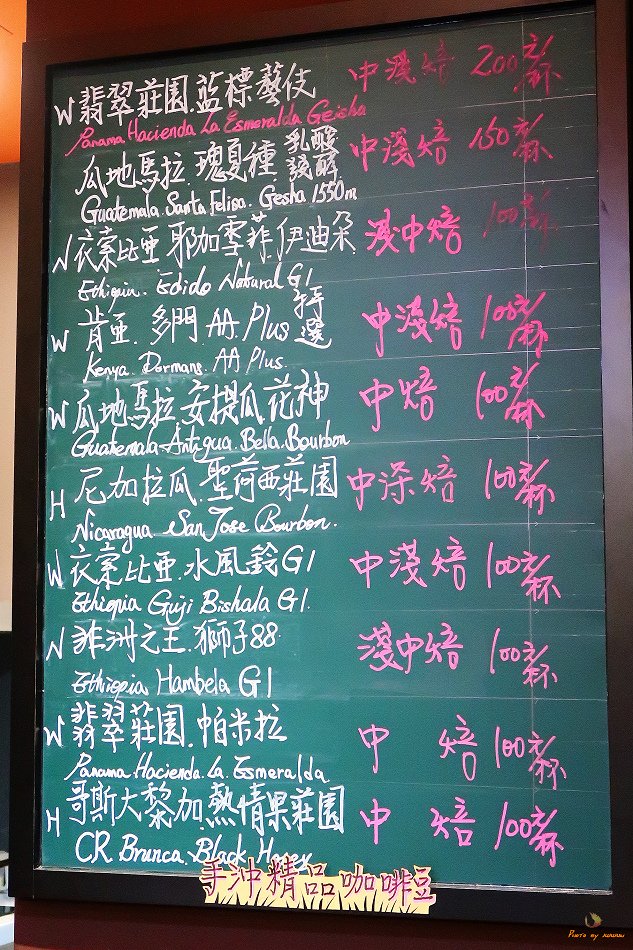 W 翡翠莊園.藍標藝伎 中淺焙 200元/杯
Panama Hacienda La Esmeralda Geisha
瓜地馬拉.瑰夏種 乳酸發酵 中淺焙 150元/杯
Guatemala.Santa Felisa. Gesha 1550m
N 衣索比亞 耶加雪菲 伊迪朵 淺中焙 100元/杯
Ethiopia. Edido Natural G1
W 肯亞.多門 AA Plus 手選 中淺焙 100元/杯
Kenya. Dormans. AA Plus.
W 瓜地馬拉 安提瓜 花神 中焙 100元/杯
Guatemala Antigua. Bella. Bourbon
H 尼加拉瓜.聖荷西莊園 中深焙 100元/杯
Nicaragua San Jose Bourbon.
W 衣索比亞.水風鈴 G1 中淺焙 100元/杯
Ethiopia Guji Bishala G1.
N 非洲之王.獅子88 淺中焙 100元/杯
Ethiopia Hambela G1
W 翡翠莊園.帕米拉 中 焙 100元/杯
Panama Hacienda. La. Esmeralda
H 哥斯大黎加.熱情果莊園 中 焙 100元/杯
CR Brunca. Black Honey
手沖精品咖啡豆